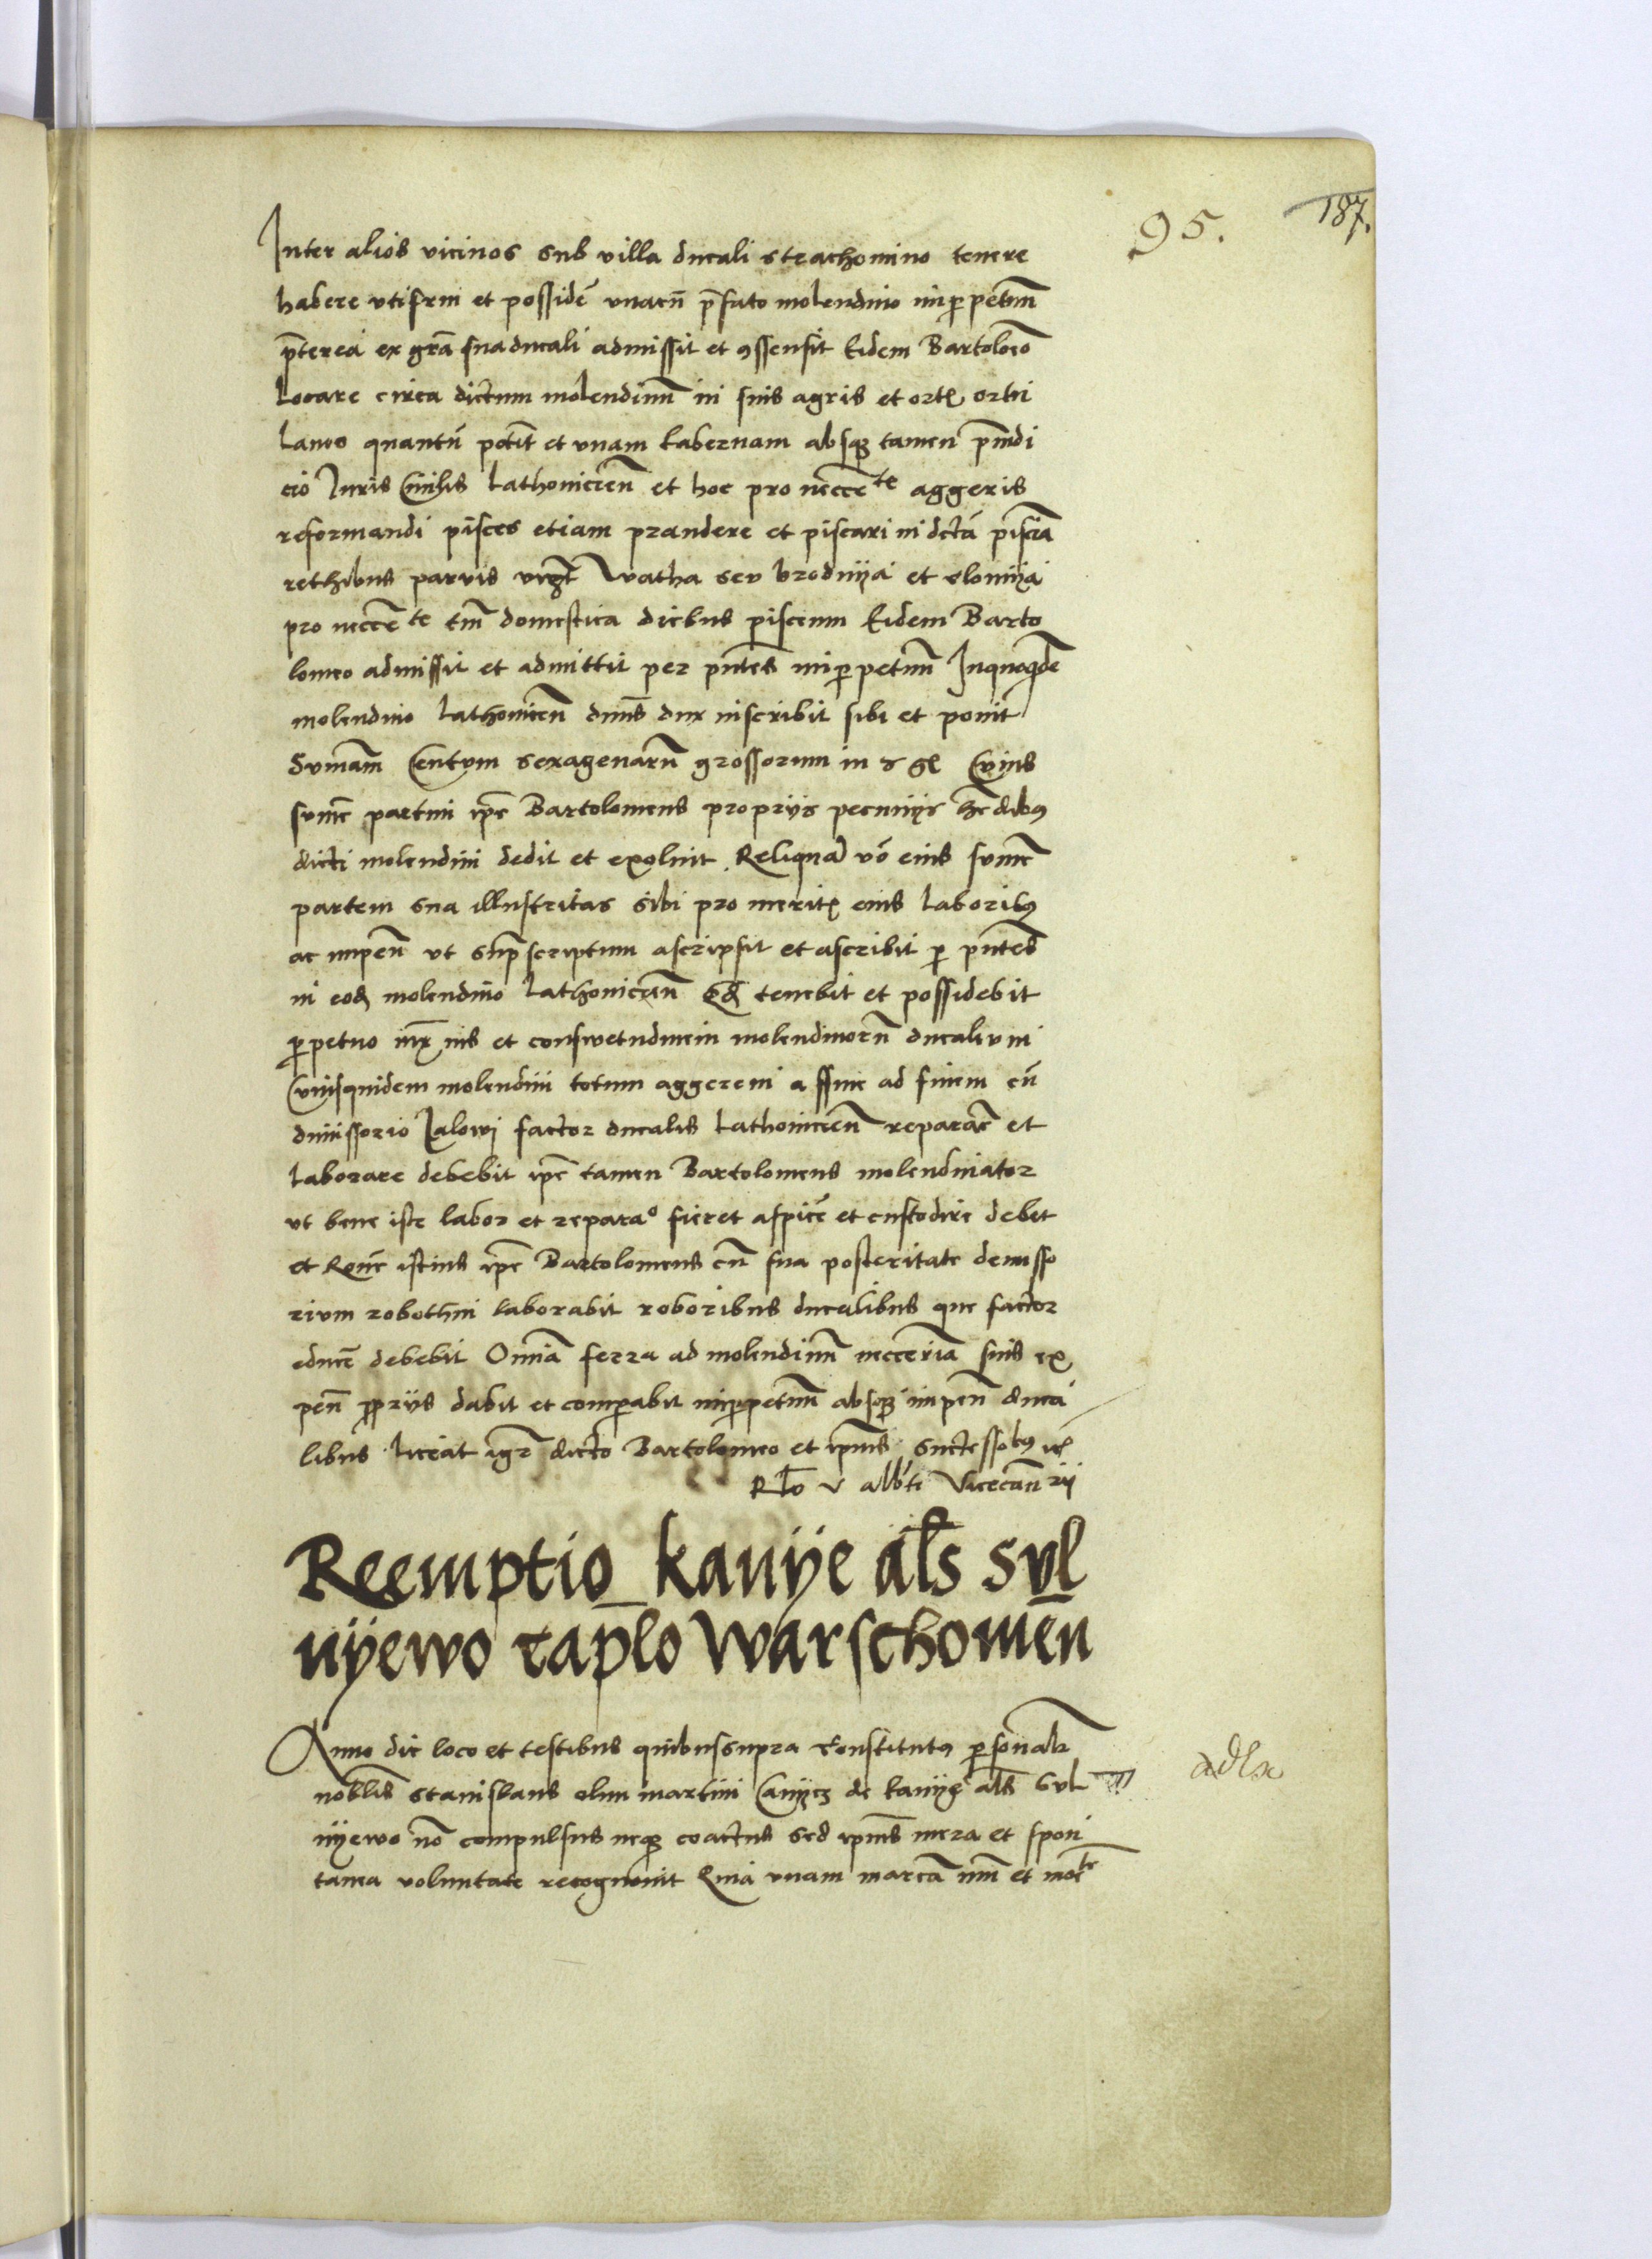 95.
187.
Inter alios vicinos sub villa ducali strachomino tenere
habere utifrui et possidē unacū p̄fato molendino imperpetuū
p̄terea ex grā sua ducali admissit et consensit Eidem Bartolomeo
Locare circa dictum molendinū in suis agris et ortis ortu
laneo quantū potit et unam tabernam absque tamen p̄iudi
cio Iuris Civilis Lathoniciēn et hoc pro necc̄e te aggeris
reformandi pisces etiam prandere et piscari in dctā piscīa
rethibus parvis vlgt Watha seu brodnya et slomya
pro necc̄e te tm̄ domestica diebus piscium Eidem Barto
lomeo admissit et admittit per pn̄tes imperpetuū Inquoqdē
molendino Lathoniceñ dn̄us dux inscribit sibi et ponit
Sumam̄ Centum sexagenarū grossorum in Cuius
sum̄e partim ip̄e Bartolomeus proprys pecunys hēdibus
dicti molendini dedit et exoluit Reliqua vō eius sum̄e
partem sua illustritas sibi pro meritis eius laboribus
ac impeñ ut sup̄scriptum ascripsit et ascribit per pn̄tes
in eodem molendino Lathoniceñ tenebit et possidebit
perpetuo iux̄ ius et conswetudinem molendinorū ducalium
Cuiusquidem molendini totum aggerem a fine ad finem cū
dmissorio Jalowj factor ducalis Lathoniciēn reparāe et
laborare debebit ip̄e tamen Bartolomeus molendinator
ut bene iste labor et reparao fieret aspicē et custodire debet
et istius ip̄e Bartolomeus cū sua posteritate demisso
rium robothni laborabit roboribus ducalibus que factor
educē debebit Omīa ferra ad molendinū neccēria suis ex
peñ pprys dabit et comparabit imperpetuū absque impeñ duca
libus liceat igr dicto Bartolomeo et ipius successoribus
Rlo v alb̄ti Vicecan̄ rij
Reemptio kanÿe al̄s sul
nÿewo capl̄o Warschomen̄
Anno die loco et testibus quibussupra Constitutus personalr
nobl̄is Stanislaus olim martini Canycz de kanye al̄s Sul
nyewo nō compulsus neque coactus sed ipius mera et spon
tanea voluntate recognovit Quia unam marcā nūm et mōe te